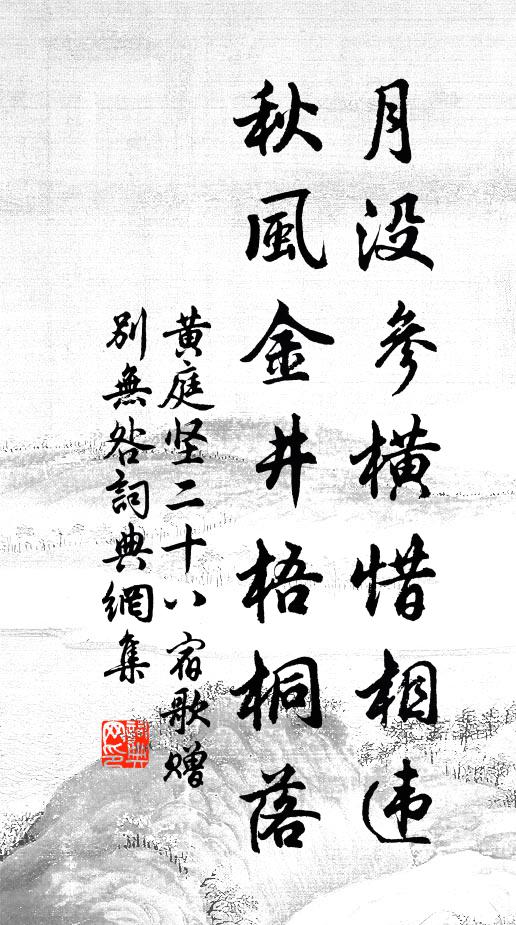 月没參橫惜相违
秋風金井梧桐落
黄庭坚二十八宿歌赠
別無咎詞典網集